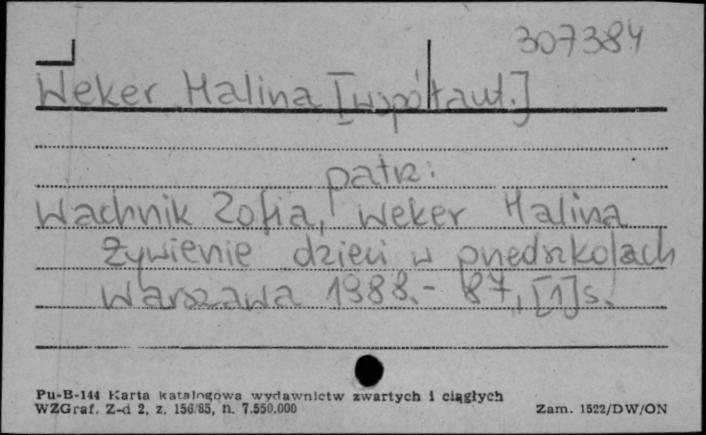 307384
Weker Halina [współaut.]
patrz:
Wachnik Zofia, Weker Halina
Żywienie dzieci w przedszkolach
Warszawa 1988.- 87, [1] s.
Pu-B-144 Karta katalogowa wydawnictw zwartych i ciągłych
WZGraf. Z-d 2, z. 156/85, n. 7.550.000
Zam. 1522/DW/ON